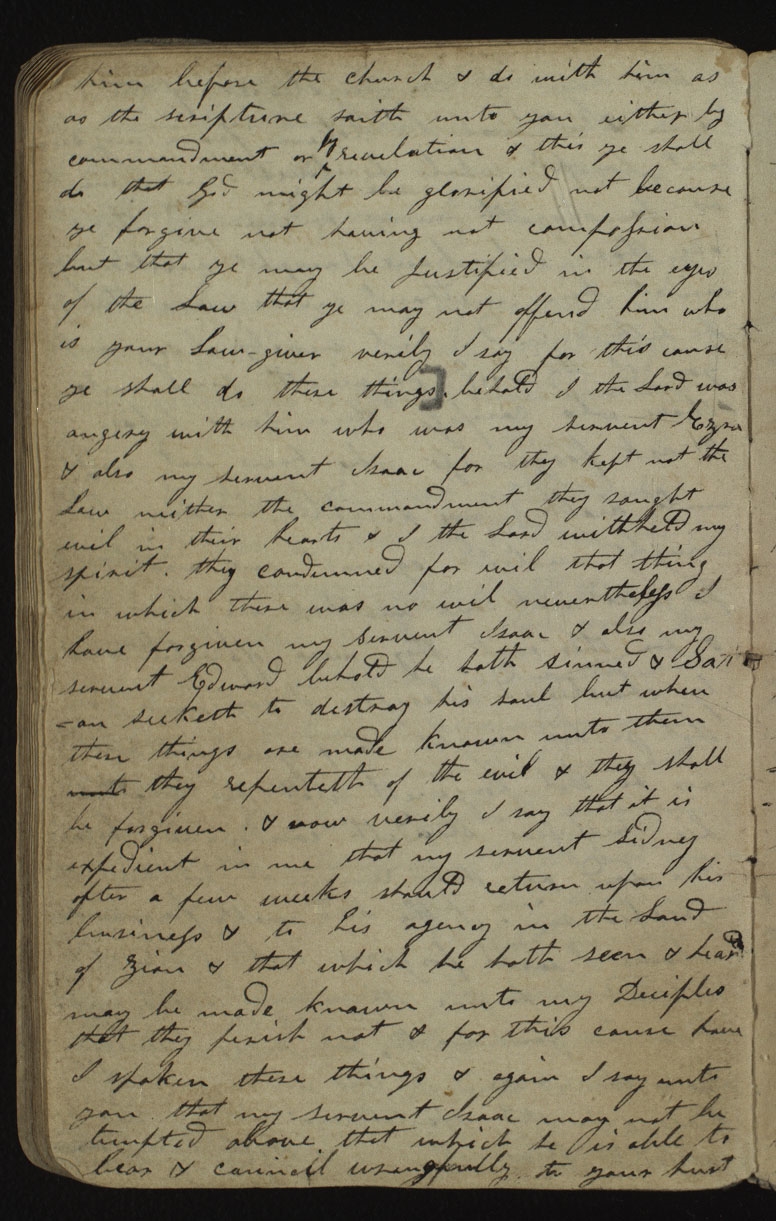 him before the church & do with him as
as the scripture saith unto you either by
commandment or by revelation & this ye shall
do that God might be glorified not because
ye forgive not having not compassion
but that ye may be Justified in the eyes
of the Law that ye may not offend him who
is your Law-giver verily I say for this cause
ye shall do these things] behold I the Lord was
angery with him who was my servent Ezra
& also my servent Isaac for they kept not the
Law neither the commandment they saught
evil in their hearts & I the Lord withheld my
spirit. they condemned for evil that thing
in which there was no evil nevertheless I
have forgiven my servent Isaac & also my
servent Edward behold he hath sinned & Sat
=an seeketh to destroy his soul but when
these things are made known unto them
unto they repenteth of the evil & they shall
be forgiven. & now verily I say that it is
expedient in me that my servent Sidney
after a few weeks should return upon his
business & to his agency in the Land
of Zion & that which he hath seen & heard
may be made known unto my Deciples
that they perish not & for this cause have
I spoken these things & again I say unto
you that my servent Isaac may not be
tempted above that which he is able to
bear & council wrongfully to your hurt